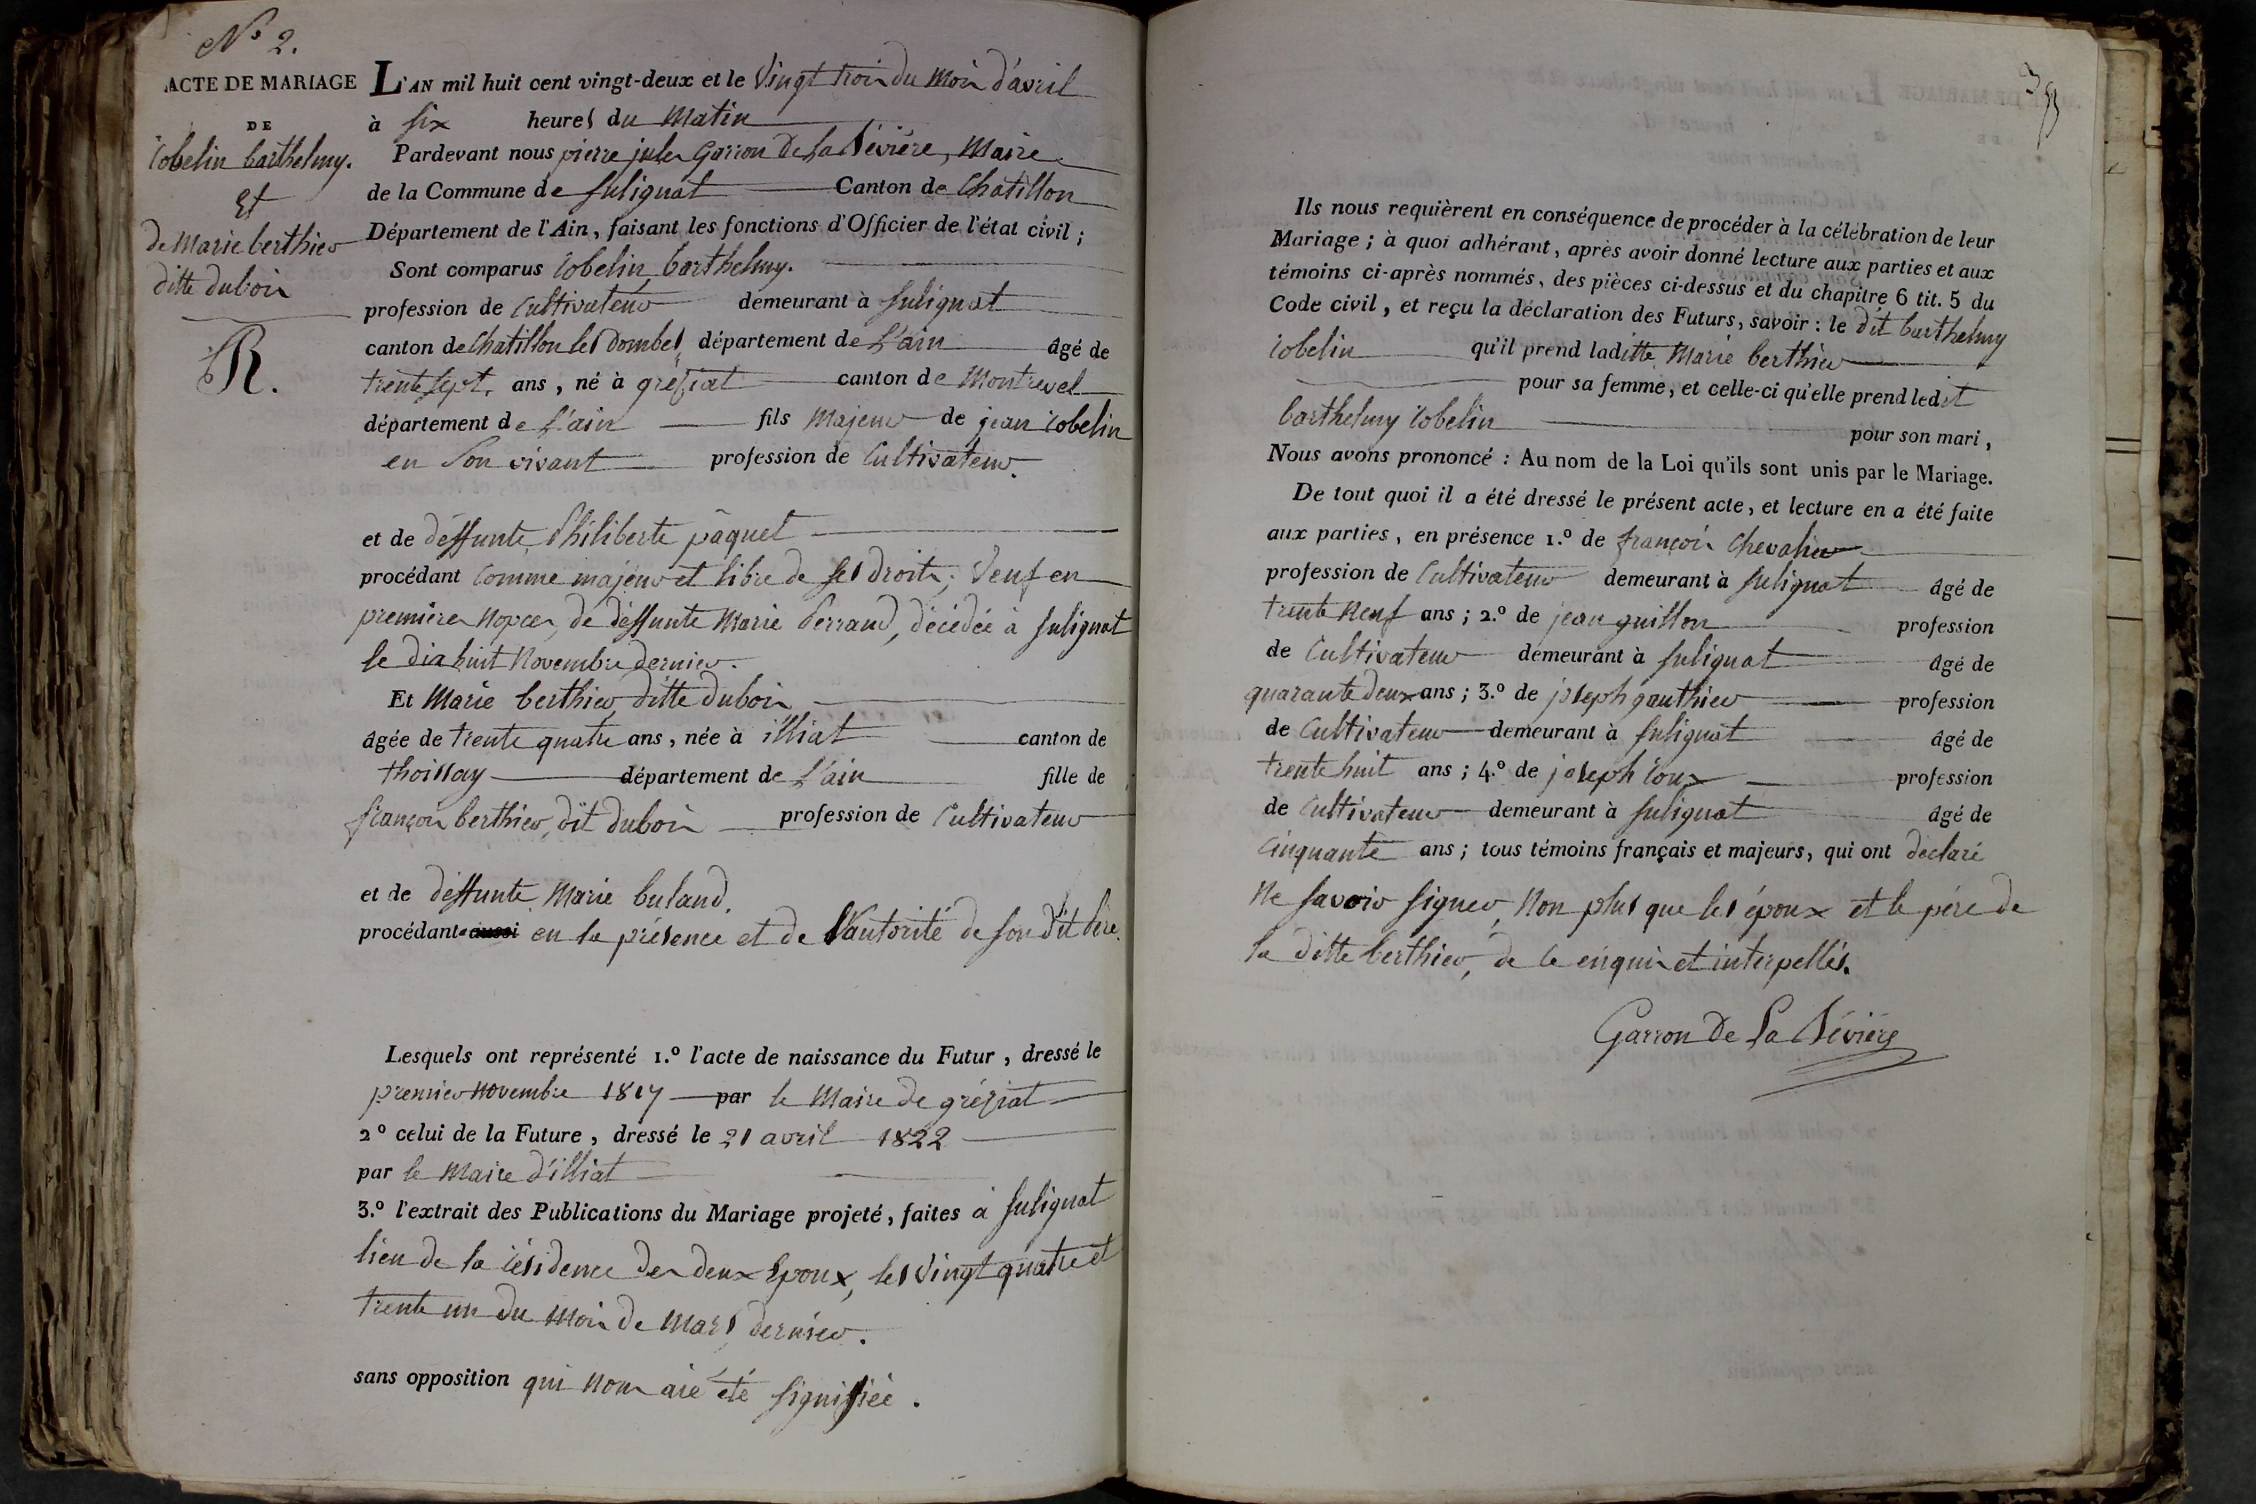 N.° 2.
ACTE DE MARIAGE
DE
Robelin barthelmy.
Et
de Marie berthier
ditte dubois
R.
L'AN mil huit cent vingt-deux et le Vingt trois du Mois d'avril
à six heures du Matin
Pardevant nous pierre jules Garron De La Bévière, Maire
de la Commune de Sulignat Canton de Chatillon
Département de l'Ain, faisant les fonctions d'Officier de l'état civil ;
Sont comparus Robelin barthelmy.
profession de Cultivateur demeurant à Sulignat
canton de Chatillon les dombes département de L'ain âgé de
trente sept. ans, né à gréziat canton de Montrevel
département de L'ain fils Majeur de jean Robelin
en Son vivant profession de Cultivateur.
et de déffunte Philiberte pâquet
procédant Comme majeur et libre de ses droits ; Veuf en
premières Nopces, de déffunte Marie Perraud, décédée à Sulignat
le dix huit Novembre dernier.
Et Marie berthier ditte dubois
âgée de trente quatre ans, née à illiat canton de
thoissay département de L'ain fille de
françois berthier dit dubois profession de Cultivateur
et de déffunte Marie buland.
procédant aussi en la présence et de L'autorité de son dit Père.
Lesquels ont représenté 1.° l'acte de naissance du Futur, dressé le
premier Novembre 1817 par le Maire de gréziat
2° celui de la Future, dressé le 21 avril 1822
par le Maire d'illiat
3.° l'extrait des Publications du Mariage projeté, faites à Sulignat
lieu de la résidence des deux Epoux, les Vingt quatre et
trente un du Mois de Mars dernier.
sans opposition qui nous aie été signifiée.
39
Ils nous requièrent en conséquence de procéder à la célébration de leur
Mariage ; à quoi adhérant, après avoir donné lecture aux parties et aux
témoins ci-après nommés, des pièces ci-dessus et du chapitre 6 tit. 5 du
Code civil, et reçu la déclaration des Futurs, savoir : le dit barthelmy
Robelin qu'il prend laditte Marie berthier
pour sa femme, et celle-ci qu'elle prend ledit
barthelmy Robelin pour son mari,
Nous avons prononcé : Au nom de la Loi qu'ils sont unis par le Mariage.
De tout quoi il a été dressé le présent acte, et lecture en a été faite
aux parties, en présence 1.° de françois Chevalier
profession de Cultivateur demeurant à Sulignat âgé de
trente Neuf ans ; 2.° de jean guillon profession
de Cultivateur demeurant à Sulignat âgé de
quarante deux ans ; 3.° de joseph gauthier profession
de Cultivateur demeurant à Sulignat âgé de
trente huit ans ; 4.° de joseph roux profession
de Cultivateur demeurant à Sulignat âgé de
Cinquante ans ; tous témoins français et majeurs, qui ont déclaré
Ne savoir signer, Non plus que les époux et le père de
la ditte berthier, de ce enquis et interpellés.
Garron De La Bévière